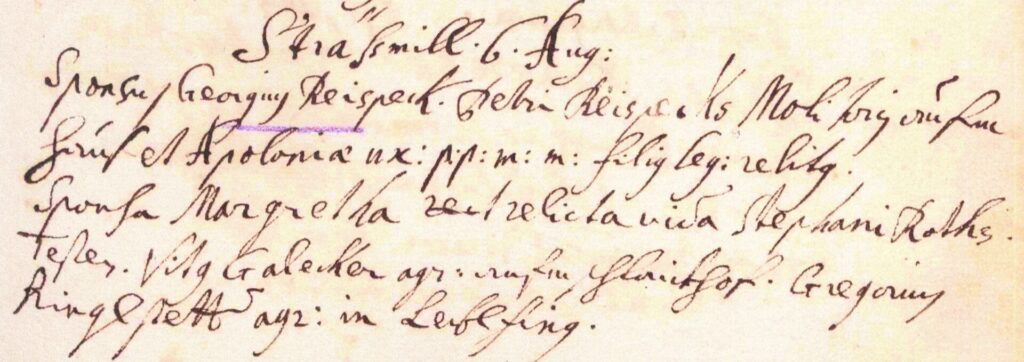 Strassmill. 6. Aug:
Sponsus Georgius Reispeck. Petri Reispecks Molitoris aufm
Haus et Apoloniæ ux: p:p: m: m: filig leg: relitg.
Sponsa Margretha relicta vidua Stephani Roths.
Testes. Vitg Galecker agr: aufm hof. Gregorius
Ringlstett agr: in Leiblfing.